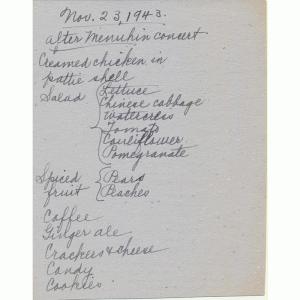 Nov. 23, 1943.
after Menuhin concert
Creamed chicken in
pattie shell
Salad { Lettuce
Chinese cabbage
Watercress
Tomato
Cauliflower
Pomegranate
Spiced { Pears
fruit { Peaches
Coffee
Ginger ale
Crackers & cheese
Candy
Cookies